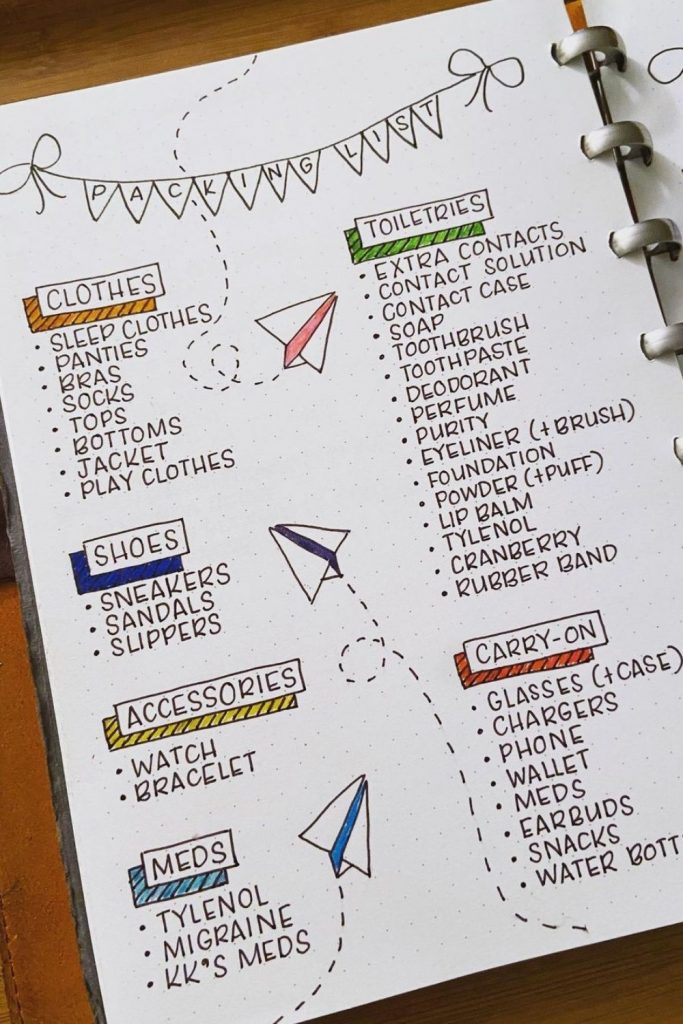 PACKING LIST
CLOTHES
• SLEEP CLOTHES
• PANTIES
• BRAS
• SOCKS
• TOPS
• BOTTOMS
• JACKET
• PLAY CLOTHES
SHOES
• SNEAKERS
• SANDALS
• SLIPPERS
ACCESSORIES
• WATCH
• BRACELET
MEDS
• TYLENOL
• MIGRAINE
• KK'S MEDS
TOILETRIES
• EXTRA CONTACTS
• CONTACT SOLUTION
• CONTACT CASE
• SOAP
• TOOTHBRUSH
• TOOTHPASTE
• DEODORANT
• PERFUME
• PURITY
• EYELINER (+BRUSH)
• FOUNDATION
• POWDER (+PUFF)
• LIP BALM
• TYLENOL
• CRANBERRY
• RUBBER BAND
CARRY-ON
• GLASSES (+CASE)
• CHARGERS
• PHONE
• WALLET
• MEDS
• EARBUDS
• SNACKS
• WATER BOTT